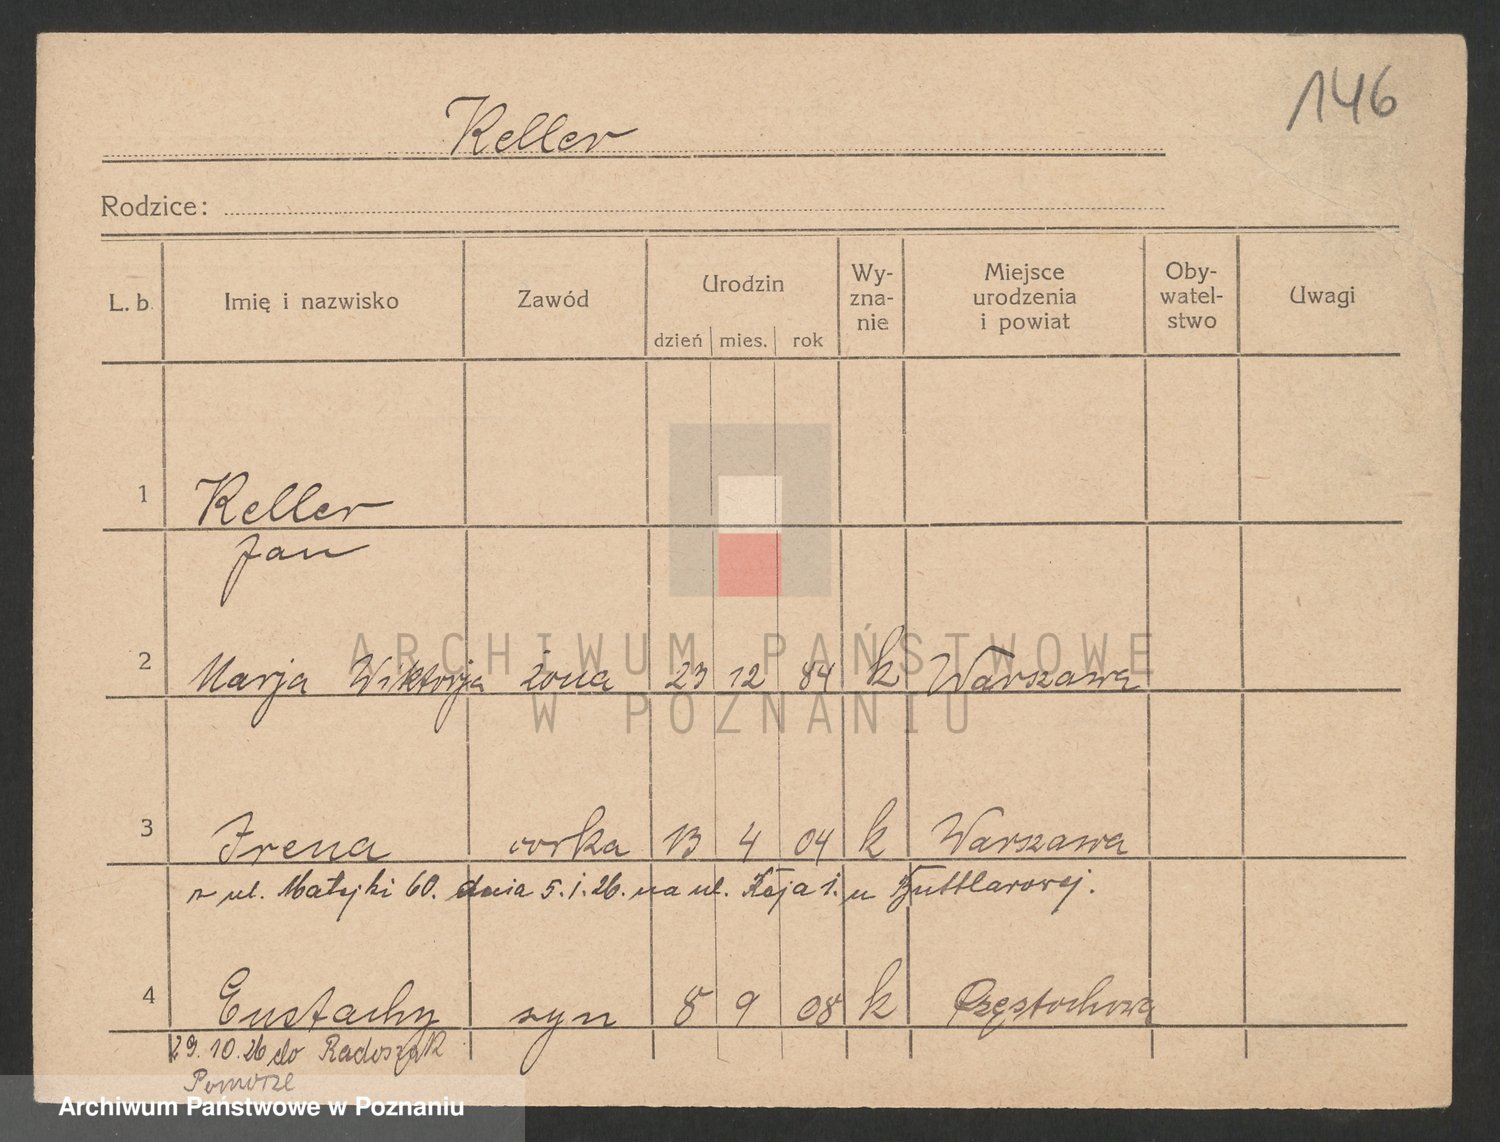 146
Keller
Rodzice:
L. b. Imię i nazwisko Zawód Urodzin dzień mies. rok Wy-zna-nie Miejsce urodzenia i powiat Oby-watel-stwo Uwagi
1 Keller
Jan
ARCHIWUM PAŃSTWOWE
2 Marja Wiktorja żona 23 12 84 k Warszawa
W POZNANIU
3 Irena corka 13 4 04 k Warszawa
z ul. Matejki 60. dnia 5.1.26. na ul. 1. u Buttlarowej.
4 Eustachy syn 8 9 08 k Częstochowa
29.10.26 do
Pomorze
Archiwum Państwowe w Poznaniu